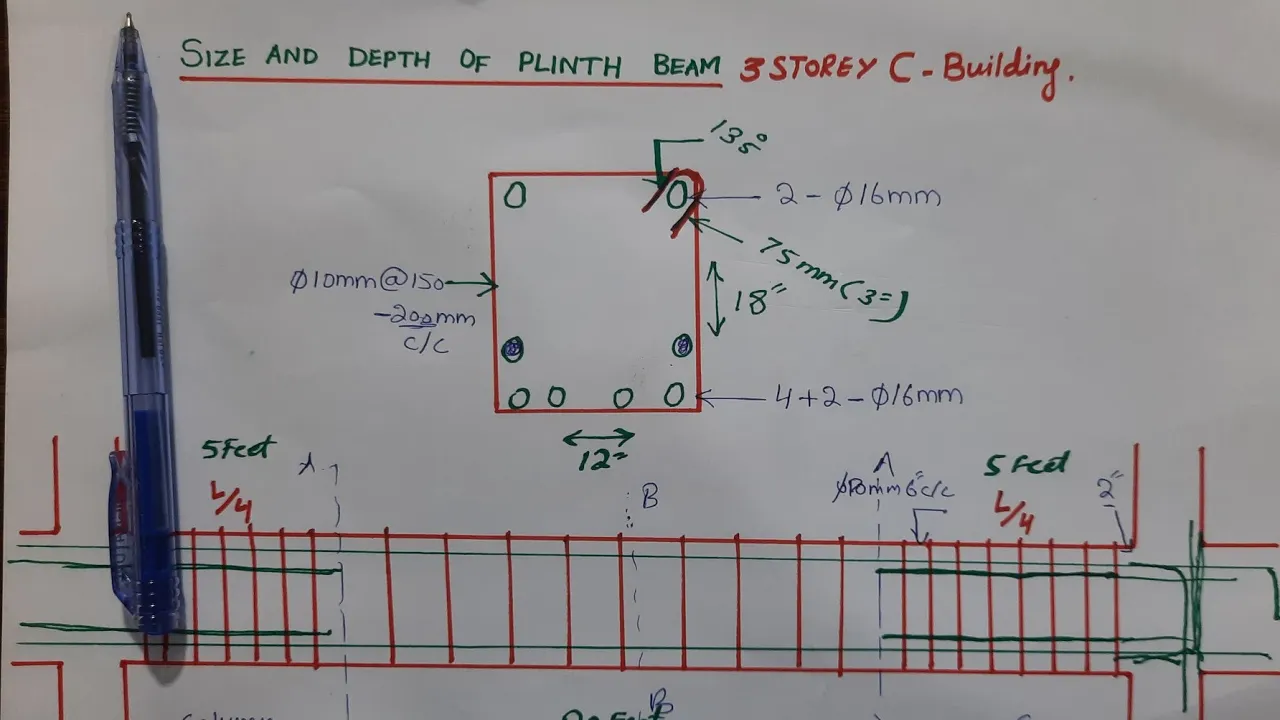 SIZE AND DEPTH OF PLINTH BEAM 3 STOREY C - Building.
135°
2 - Φ16mm
75mm (3=)
Φ10mm@150
-200mm
C/C
18"
4+2 - Φ16mm
12=
5 Feet
L/4
A
B
A
6" c/c
5 Feet
L/4
2"
B